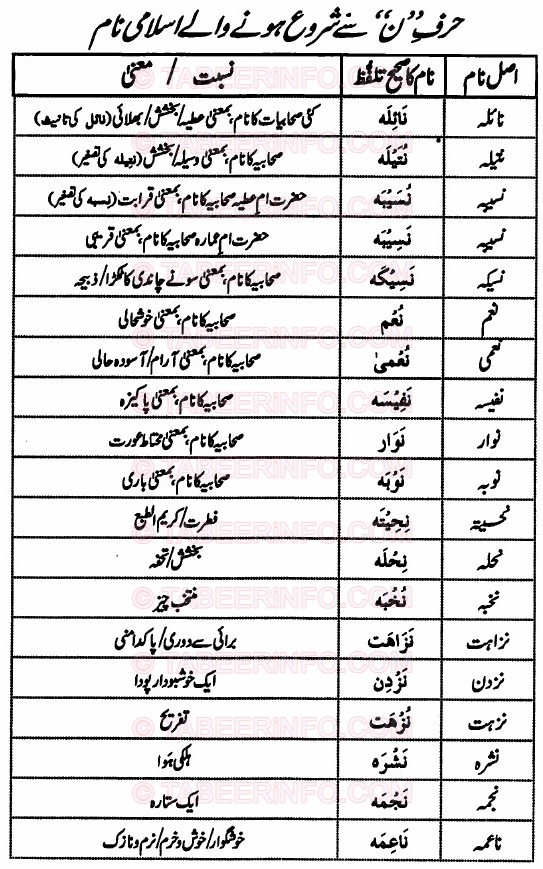 حرفِ ’’ن‘‘ سے شروع ہونے والے اسلامی نام
اصل نام | نام کا صحیح تلفّظ | نسبت / معنیٰ
نائلہ | نَائِلَه | کئی صحابیات کا نام، بمعنیٰ عطیہ/بخشش/بھلائی (نائل کی تانیث)
نتیلہ | نُتَيْلَه | صحابیہ کا نام، بمعنیٰ وسیلہ/بخشش (نتیلہ کی تصغیر)
نسیبہ | نُسَيْبَه | حضرت ام عطیہ صحابیہ کا نام، بمعنیٰ قرابت (نسبہ کی تصغیر)
نسیبہ | نَسِيْبَه | حضرت ام عمارہ صحابیہ کا نام، بمعنیٰ قریبی
نسیکہ | نَسِيْكَه | صحابیہ کا نام، بمعنیٰ سونے چاندی کا ٹکڑا/ذبیحہ
نعم | نُعْم | صحابیہ کا نام، بمعنیٰ خوشحالی
نعمی | نُعْمىٰ | صحابیہ کا نام، بمعنیٰ آرام/آسودہ حالی
نفیسہ | نَفِيْسَه | صحابیہ کا نام، بمعنیٰ پاکیزہ
نوار | نَوَار | صحابیہ کا نام، بمعنیٰ محتاط عورت
نوبہ | نَوْبَه | صحابیہ کا نام، بمعنیٰ باری
نحیتہ | نِحِيْتَه | فطرت/کریم الطبع
نحلہ | نِحْلَه | بخشش/تحفہ
نخبہ | نُخْبَه | منتخب چیز
نزاہت | نَزَاهَت | برائی سے دوری/پاکدامنی
نزدن | نَزْدِن | ایک خوشبودار پودا
نزہت | نُزْهَت | تفریح
نشرہ | نَشْرَه | ہلکی ہوا
نجمہ | نَجْمَه | ایک ستارہ
ناعمہ | نَاعِمَه | خوشگوار/خوش و خرم/نرم و نازک
© TABEERINFO.COM